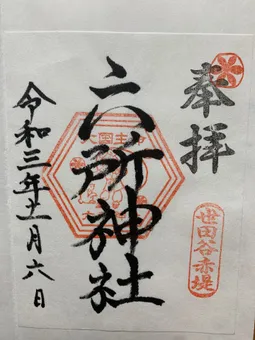 奉拝
世田谷赤堤
六所神社
令和三年十一月六日